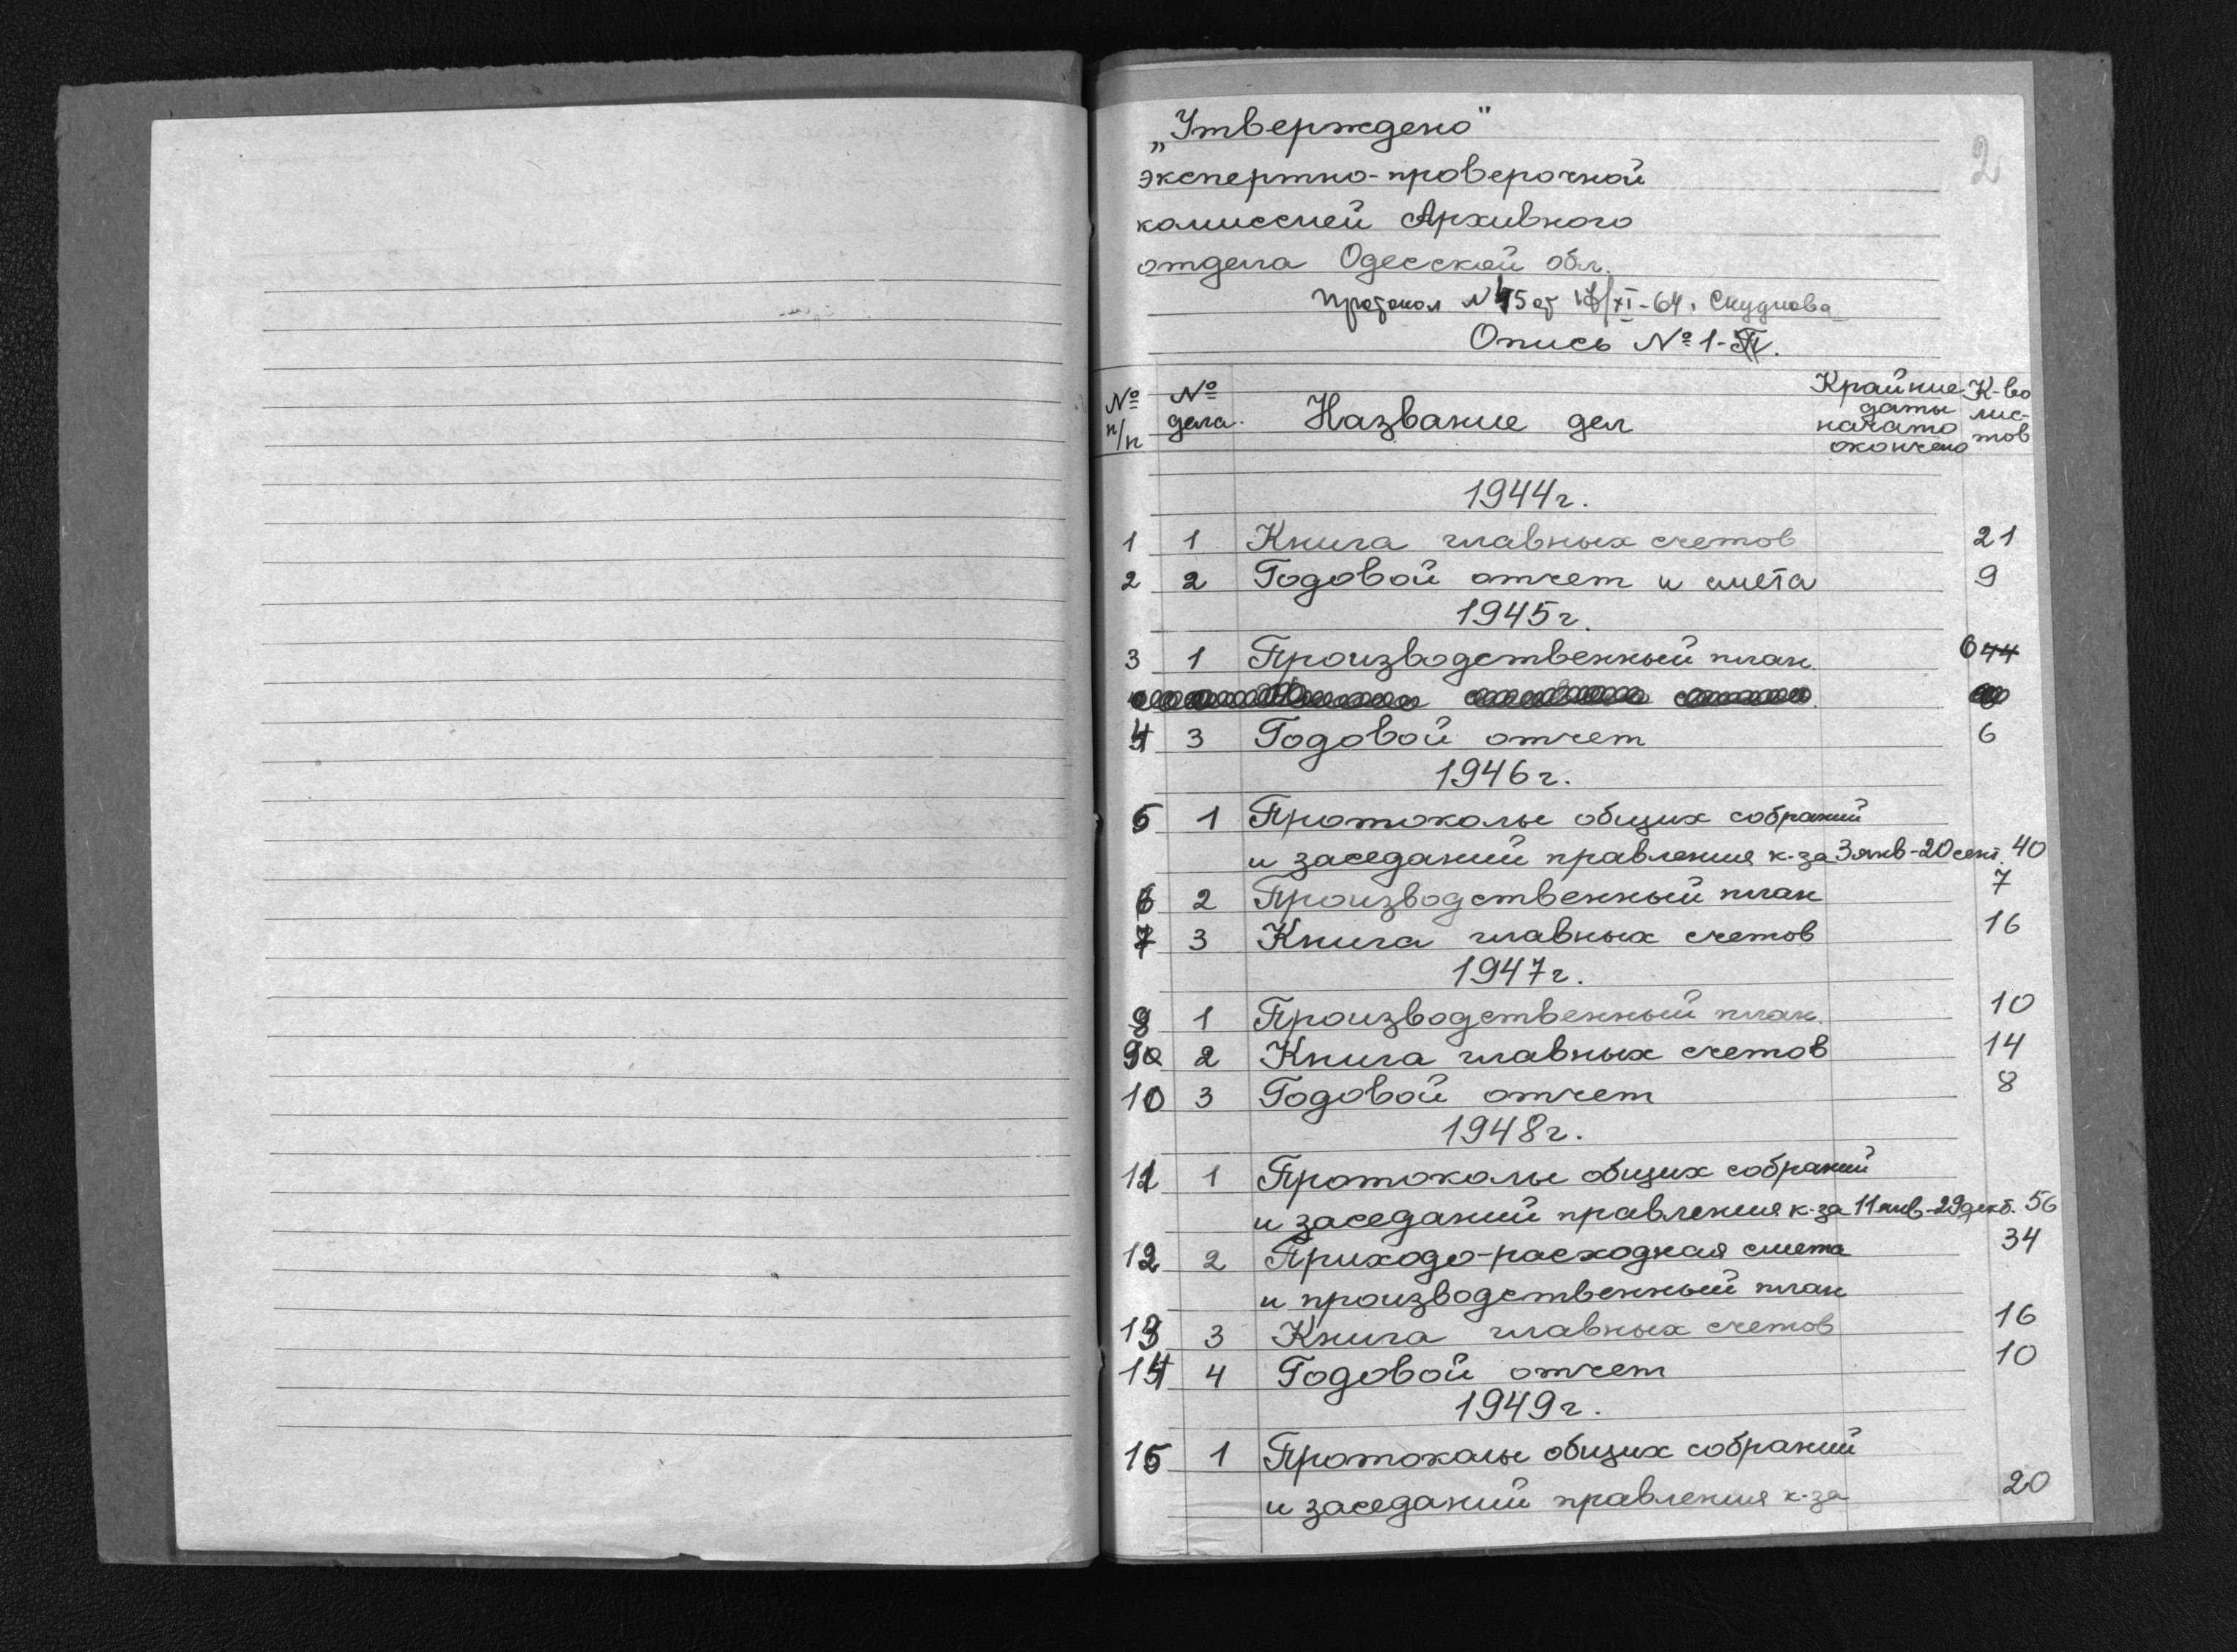 2
„Утверждено"
экспертно-проверочной
комиссией Архивного
отдела Одесской обл.
Протокол N 45 от /XI-64. Скуднова
Опись № 1-П.
№ п/п № дела. Название дел Крайние даты начато окончено К-во лис-тов
1944г.
1 1 Книга главных счетов 21
2 2 Годовой отчет и смета 9
1945г.
3 1 Производственный план 6
4 3 Годовой отчет 6
1946г.
5 1 Протоколы общих собраний
и заседаний правления к-за 3 янв-20 сент. 40
6 2 Производственный план 7
7 3 Книга главных счетов 16
1947г.
8 1 Производственный план. 10
9 2 Книга главных счетов 14
10 3 Годовой отчет 8
1948г.
11 1 Протоколы общих собраний
и заседаний правления к-за 11 янв-29 декб. 56
12 2 Приходо-расходная смета 34
и производственный план
13 3 Книга главных счетов 16
14 4 Годовой отчет 10
1949г.
15 1 Протоколы общих собраний
и заседаний правления к-за 20